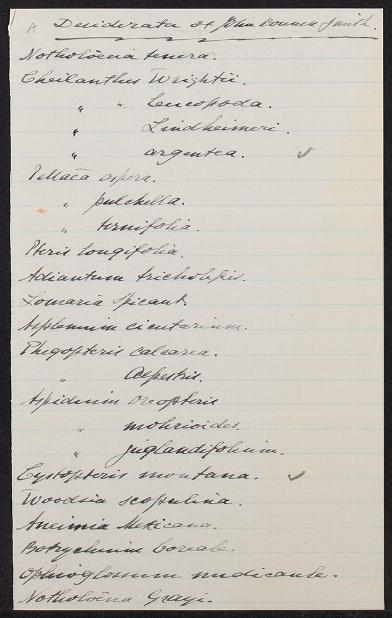 Desiderata of John Donnell Smith.
Notholaena tenera.
Cheilanthes Wrightii.
" " leucopoda.
" Lindheimeri.
" argentea. ✓
Pellaea aspera.
" pulchella.
" ternifolia.
Pteris longifolia.
Adiantum tricholepis.
Lomaria Spicant.
Asplenium cicutarium.
Phegopteris calcarea.
" alpestris.
Aspidium Oreopteris
" mohrioides.
" juglandifolium.
Cystopteris montana. ✓
Woodsia scopulina.
Aneimia Mexicana.
Botrychium boreale.
Ophioglossum nudicaule.
Notholaena Grayi.